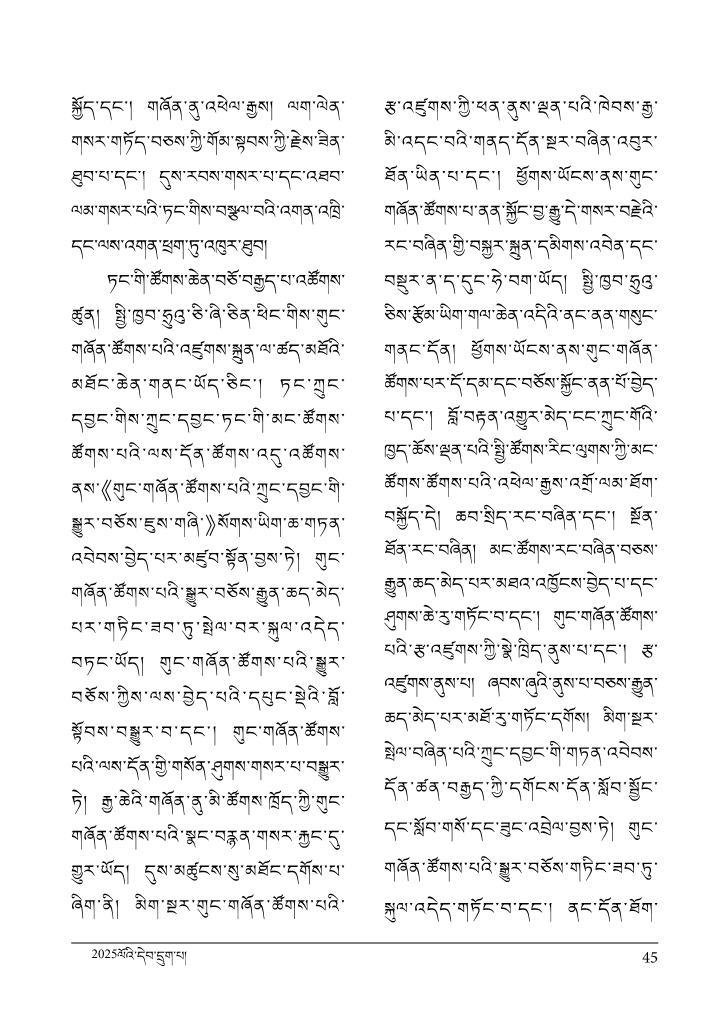 སྐྱོད་དང་། གཞོན་ནུ་འཕེལ་རྒྱས། ལག་ལེན་
གསར་གཏོད་བཅས་ཀྱི་གོམ་སྟབས་ཀྱི་རྗེས་ཟིན་
ཐུབ་པ་དང་། དུས་རབས་གསར་པ་དང་འཐབ་
ལམ་གསར་པའི་ཏང་གིས་བསྩལ་བའི་འགན་འཁྲི་
དང་ལས་འགན་ཕྲག་ཏུ་འཁུར་ཐུབ།
ཏང་གི་ཚོགས་ཆེན་བཅོ་བརྒྱད་པ་འཚོགས་
ཚུན། སྤྱི་ཁྱབ་ཧྲུའུ་ཅི་ཞི་ཅིན་ཕིང་གིས་གུང་
གཞོན་ཚོགས་པའི་འཛུགས་སྐྲུན་ལ་ཚད་མཐོའི་
མཐོང་ཆེན་གནང་ཡོད་ཅིང་། ཏང་ཀྲུང་
དབྱང་གིས་ཀྲུང་དབྱང་ཏང་གི་མང་ཚོགས་
ཚོགས་པའི་ལས་དོན་ཚོགས་འདུ་འཚོགས་
ནས་《གུང་གཞོན་ཚོགས་པའི་ཀྲུང་དབྱང་གི་
སྒྱུར་བཅོས་ཇུས་གཞི་》སོགས་ཡིག་ཆ་གཏན་
འབེབས་བྱེད་པར་མཛུབ་སྟོན་བྱས་ཏེ། གུང་
གཞོན་ཚོགས་པའི་སྒྱུར་བཅོས་རྒྱུན་ཆད་མེད་
པར་གཏིང་ཟབ་ཏུ་སྤེལ་བར་སྐུལ་འདེད་
བཏང་ཡོད། གུང་གཞོན་ཚོགས་པའི་སྒྱུར་
བཅོས་ཀྱིས་ལས་བྱེད་པའི་དཔུང་སྡེའི་བློ་
སྟོབས་བསྒྱུར་བ་དང་། གུང་གཞོན་ཚོགས་
པའི་ལས་དོན་གྱི་གསོན་ཤུགས་གསར་པ་བསྒྱུར་
ཏེ། རྒྱ་ཆེའི་གཞོན་ནུ་མི་ཚོགས་ཁྲོད་ཀྱི་གུང་
གཞོན་ཚོགས་པའི་སྣང་བརྙན་གསར་རྐྱང་དུ་
གྱུར་ཡོད། དུས་མཚུངས་སུ་མཐོང་དགོས་པ་
ཞིག་ནི། མིག་སྔར་གུང་གཞོན་ཚོགས་པའི་
རྩ་འཛུགས་ཀྱི་ཕན་ནུས་ལྡན་པའི་ཁེབས་རྒྱ་
མི་འདང་བའི་གནད་དོན་སྔར་བཞིན་འབུར་
ཐོན་ཡིན་པ་དང་། ཕྱོགས་ཡོངས་ནས་གུང་
གཞོན་ཚོགས་པ་ནན་སྐྱོང་བྱ་རྒྱུ་དེ་གསར་བརྗེའི་
རང་བཞིན་གྱི་བསྐྱར་སྐྲུན་དམིགས་འབེན་དང་
བསྡུར་ན་ད་དུང་ཧེ་བག་ཡོད། སྤྱི་ཁྱབ་ཧྲུའུ་
ཅིས་རྩོམ་ཡིག་གལ་ཆེན་འདིའི་ནང་ནན་གསུང་
གནང་དོན། ཕྱོགས་ཡོངས་ནས་གུང་གཞོན་
ཚོགས་པར་དོ་དམ་དང་བཅོས་སྐྱོང་ནན་པོ་བྱེད་
པ་དང་། བློ་བརྟན་འགྱུར་མེད་ངང་ཀྲུང་གོའི་
ཁྱད་ཆོས་ལྡན་པའི་སྤྱི་ཚོགས་རིང་ལུགས་ཀྱི་མང་
ཚོགས་ཚོགས་པའི་འཕེལ་རྒྱས་འགྲོ་ལམ་ཐོག་
བསྐྱོད་དེ། ཆབ་སྲིད་རང་བཞིན་དང་། སྔོན་
ཐོན་རང་བཞིན། མང་ཚོགས་རང་བཞིན་བཅས་
རྒྱུན་ཆད་མེད་པར་མཐའ་འཁྱོངས་བྱེད་པ་དང་
ཤུགས་ཆེ་རུ་གཏོང་བ་དང་། གུང་གཞོན་ཚོགས་
པའི་རྩ་འཛུགས་ཀྱི་སྣེ་ཁྲིད་ནུས་པ་དང་། རྩ་
འཛུགས་ནུས་པ། ཞབས་ཞུའི་ནུས་པ་བཅས་རྒྱུན་
ཆད་མེད་པར་མཐོ་རུ་གཏོང་དགོས། མིག་སྔར་
སྤེལ་བཞིན་པའི་ཀྲུང་དབྱང་གི་གཏན་འབེབས་
དོན་ཚན་བརྒྱད་ཀྱི་དགོངས་དོན་སློབ་སྦྱོང་
དང་སློབ་གསོ་དང་ཟུང་འབྲེལ་བྱས་ཏེ། གུང་
གཞོན་ཚོགས་པའི་སྒྱུར་བཅོས་གཏིང་ཟབ་ཏུ་
སྐུལ་འདེད་གཏོང་བ་དང་། ནང་དོན་ཐོག་
2025ལོའི་དེབ་དྲུག་པ།
45